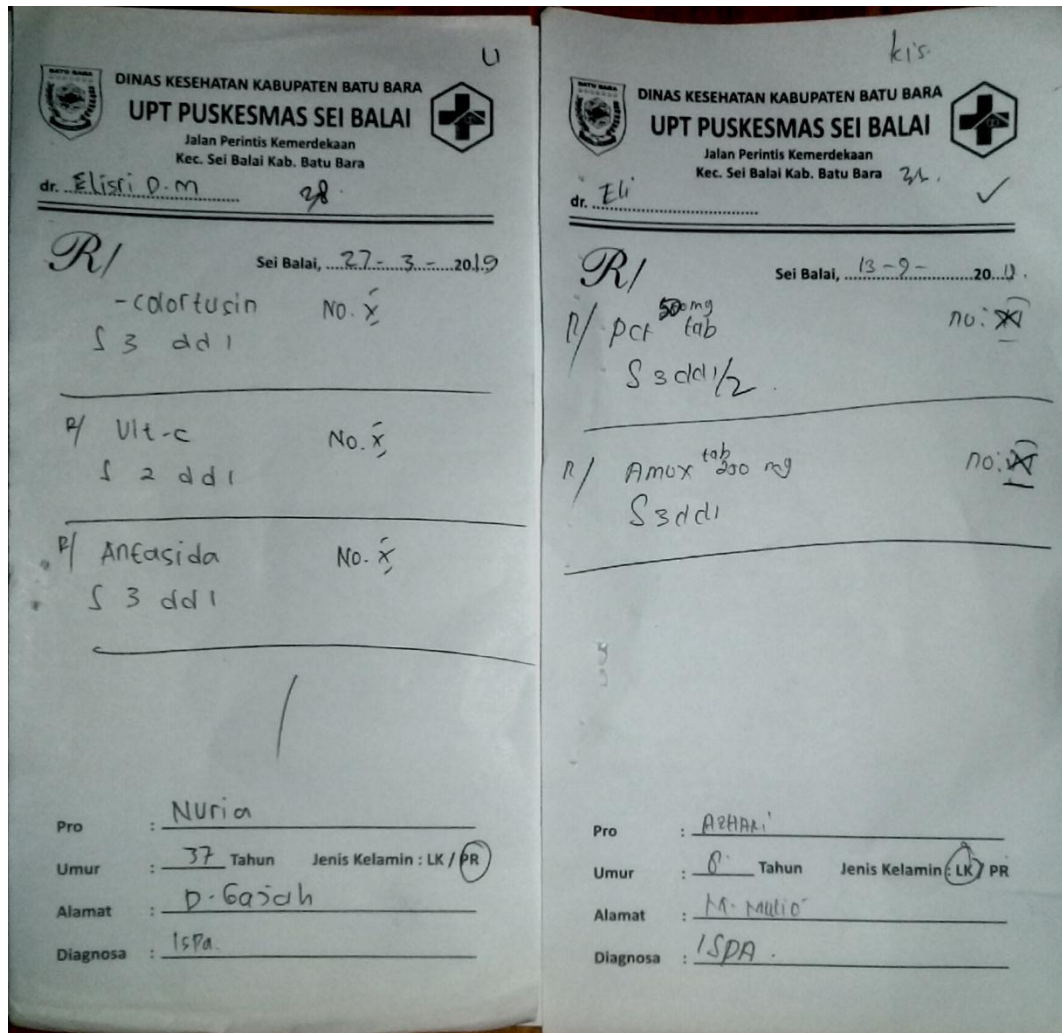 U
BATU BARA
DINAS KESEHATAN KABUPATEN BATU BARA
UPT PUSKESMAS SEI BALAI
Jalan Perintis Kemerdekaan
Kec. Sei Balai Kab. Batu Bara
dr. Elisri D.M
28.
R/
Sei Balai, 27 - 3 - 2019
- colortusin No. X
S 3 dd 1
R/ Vit-c No. X
S 2 dd 1
R/ Antasida No. X
S 3 dd 1
Pro : Nuria
Umur : 37 Tahun Jenis Kelamin : LK / PR
Alamat : D. Gajah
Diagnosa : Ispa.
kis.
BATU BARA
DINAS KESEHATAN KABUPATEN BATU BARA
UPT PUSKESMAS SEI BALAI
Jalan Perintis Kemerdekaan
Kec. Sei Balai Kab. Batu Bara
dr. Eli
R/
Sei Balai, 13 - 9 - 20
R/ pct 500 mg tab no:
S 3 dd 1/2
R/ Amox tab mg no:
S 3 dd 1
Pro : AZHARi
Umur : Tahun Jenis Kelamin : LK / PR
Alamat : M. Mulio
Diagnosa : ISPA.